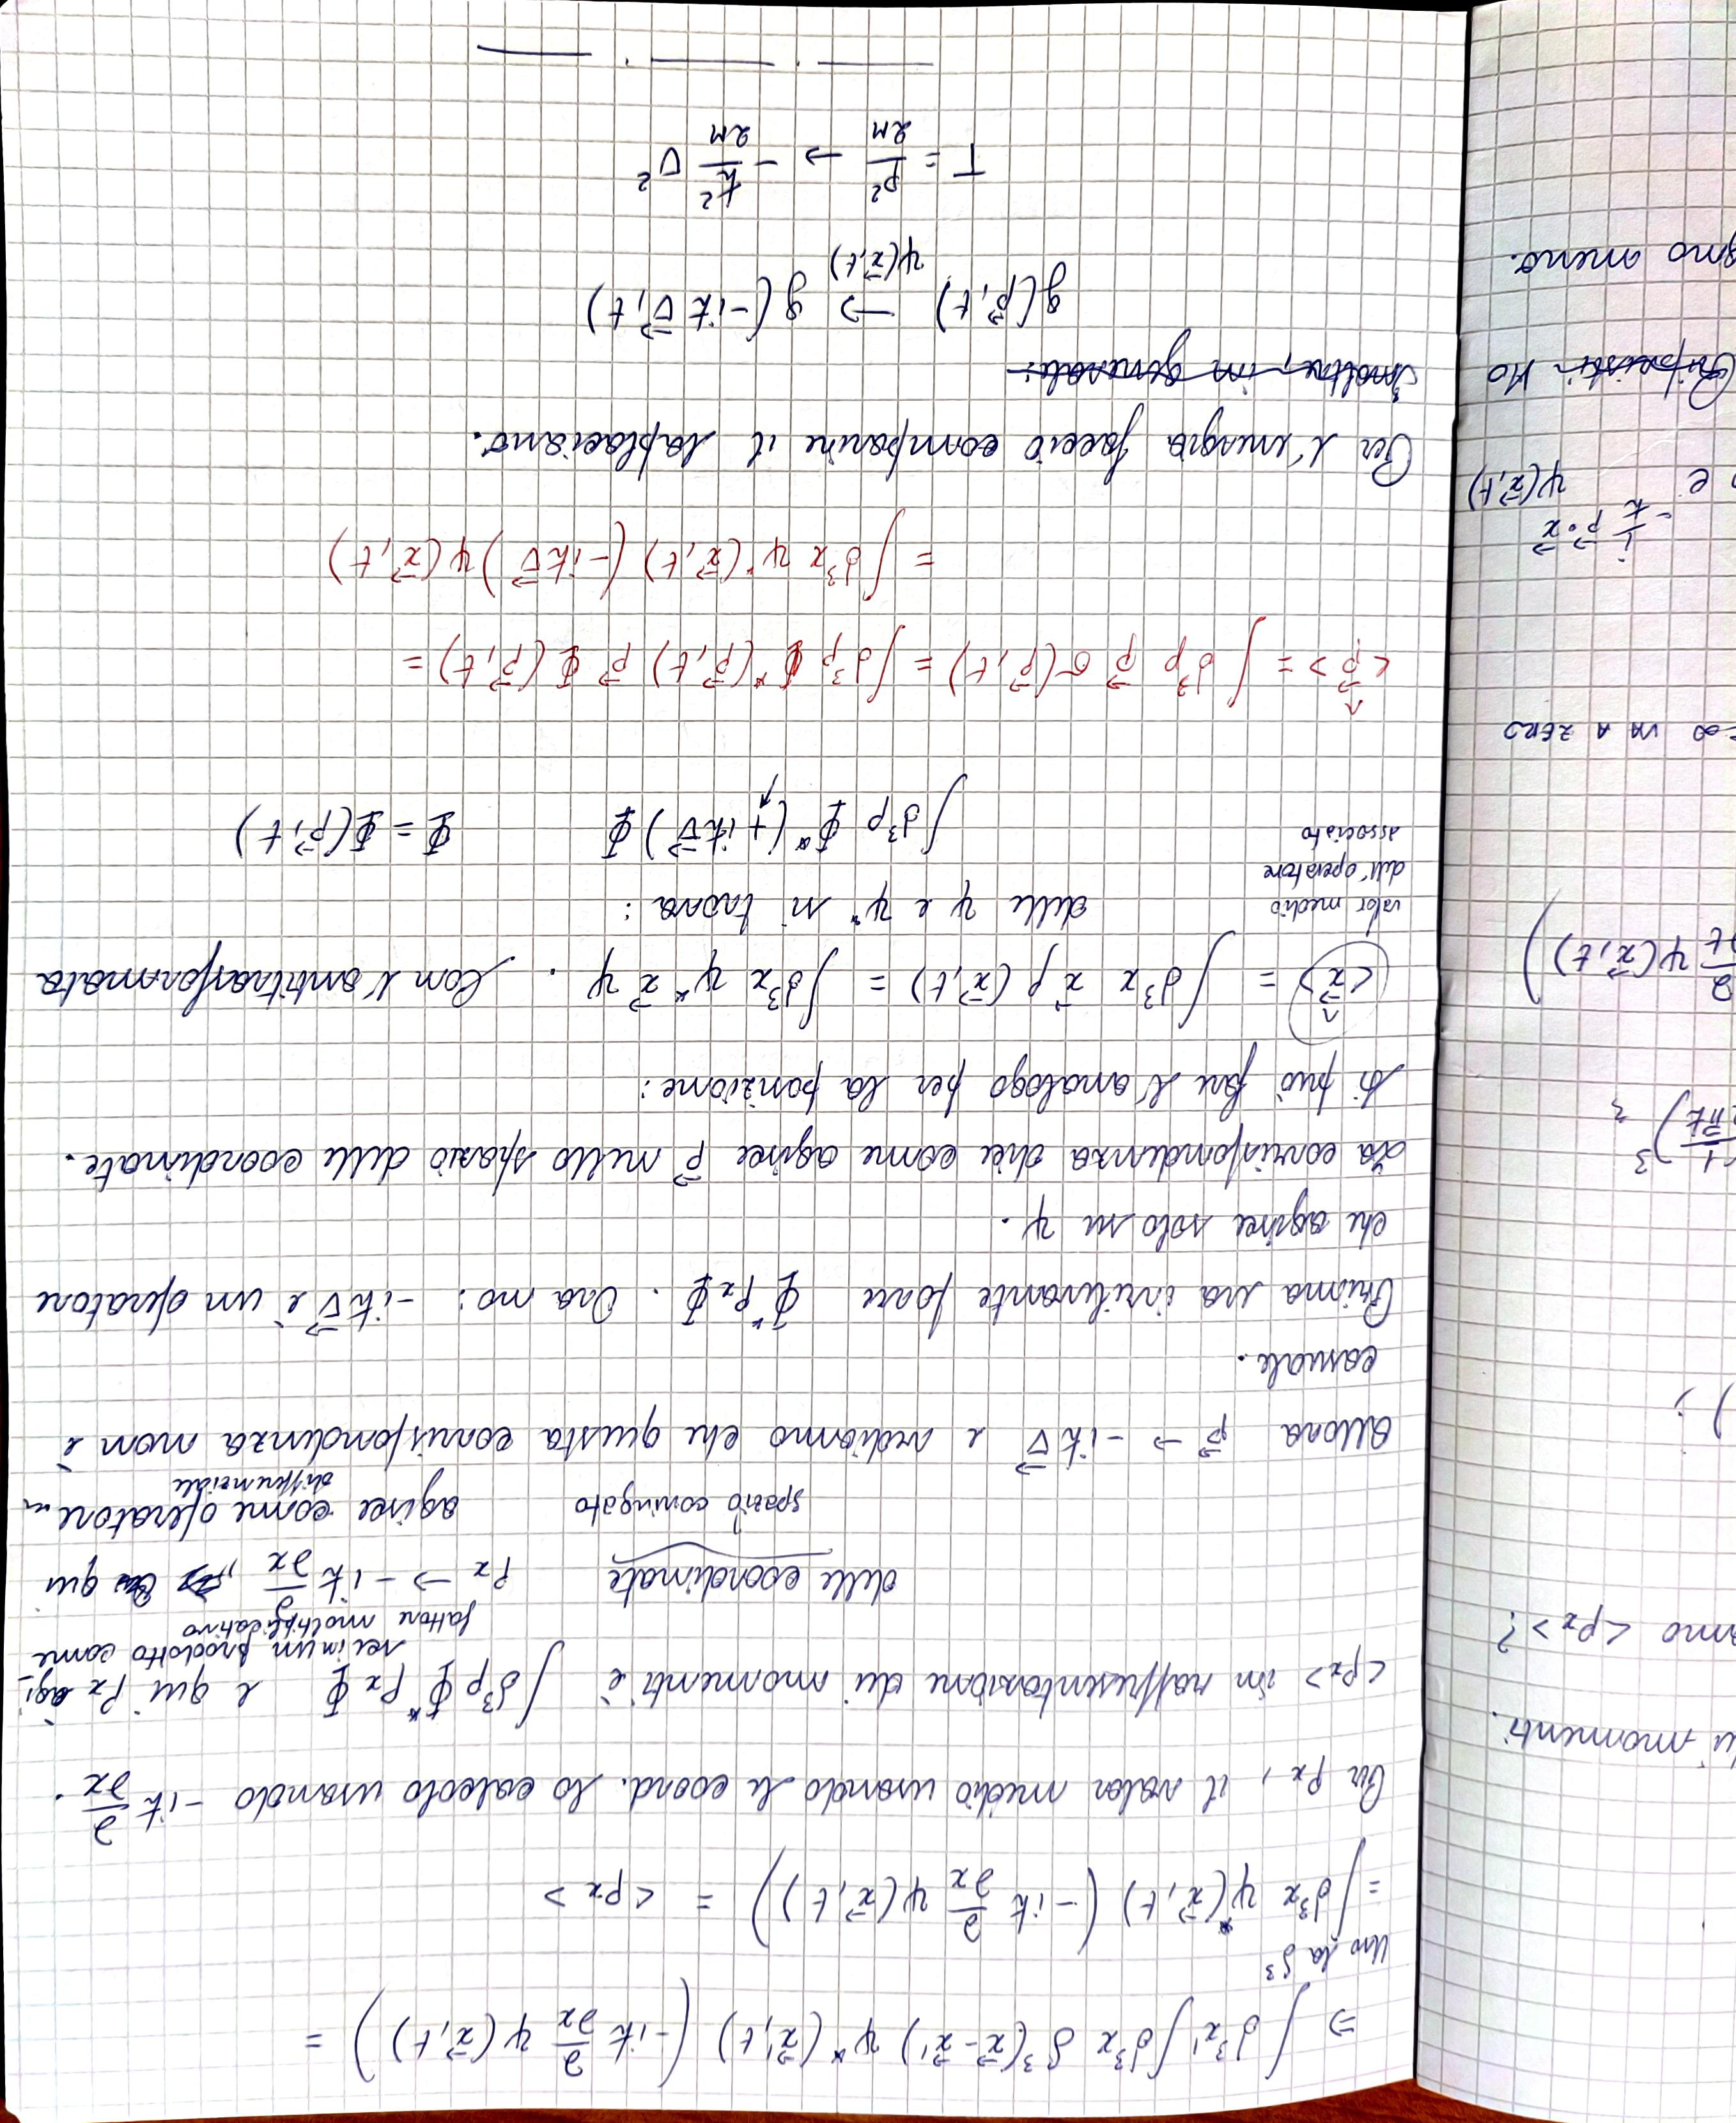 ei momenti.
amo <p_x>?
) ;
(1/√2πħ)^3 ~
∂/∂t ψ(x⃗, t))
=∞ VA A ZERO
e^{-i/ħ p⃗·x⃗} ψ(x⃗,t)
Ho
gno meno.
⇒ ∫ d³x' ∫d³x δ³(x⃗-x⃗') ψ*(x⃗',t) (-iħ ∂/∂x ψ(x⃗,t)) =
Uso la δ³
= ∫d³x ψ*(x⃗,t) (-iħ ∂/∂x ψ(x⃗,t)) = <p_x>
Per p_x, il valor medio usando le coord. lo calcolo usando -iħ ∂/∂x.
<p_x> in rappresentazione dei momenti è ∫d³p Φ* p_x Φ e qui p_x agi-
sce in un prodotto come
fattore moltiplicativo
delle coordinate p_x → -iħ ∂/∂x , qui
spazio coniugato agisce come operatore
differenziale
allora p⃗ → -iħ∇⃗ e vediamo che questa corrispondenza non è
casuale.
Prima era irrilevante porre Φ* p_x Φ. Ora no: -iħ∇⃗ è un operatore
che agisce solo su ψ.
La corrispondenza dice come agisce p⃗ nello spazio delle coordinate.
Si può fare l'analogo per la posizione:
<x̂⃗> = ∫d³x x⃗ ρ(x⃗,t) = ∫d³x ψ* x⃗ ψ . Con l'antitrasformata
valor medio
dell'operatore
associato
delle ψ e ψ* si trova:
∫d³p Φ* (+iħ∇⃗) Φ Φ = Φ(p⃗,t)
<p̂⃗> = ∫ d³p p⃗ σ(p⃗,t) = ∫d³p Φ*(p⃗,t) p⃗ Φ(p⃗,t) =
= ∫d³x ψ*(x⃗,t) (-iħ∇⃗) ψ(x⃗,t)
Per l'energia faccio comparire il laplaciano.
Inoltre, in generale:
g(p⃗,t) → g(-iħ∇⃗,t)
ψ(x⃗,t)
T = p²/2M → -ħ²/2M ∇²